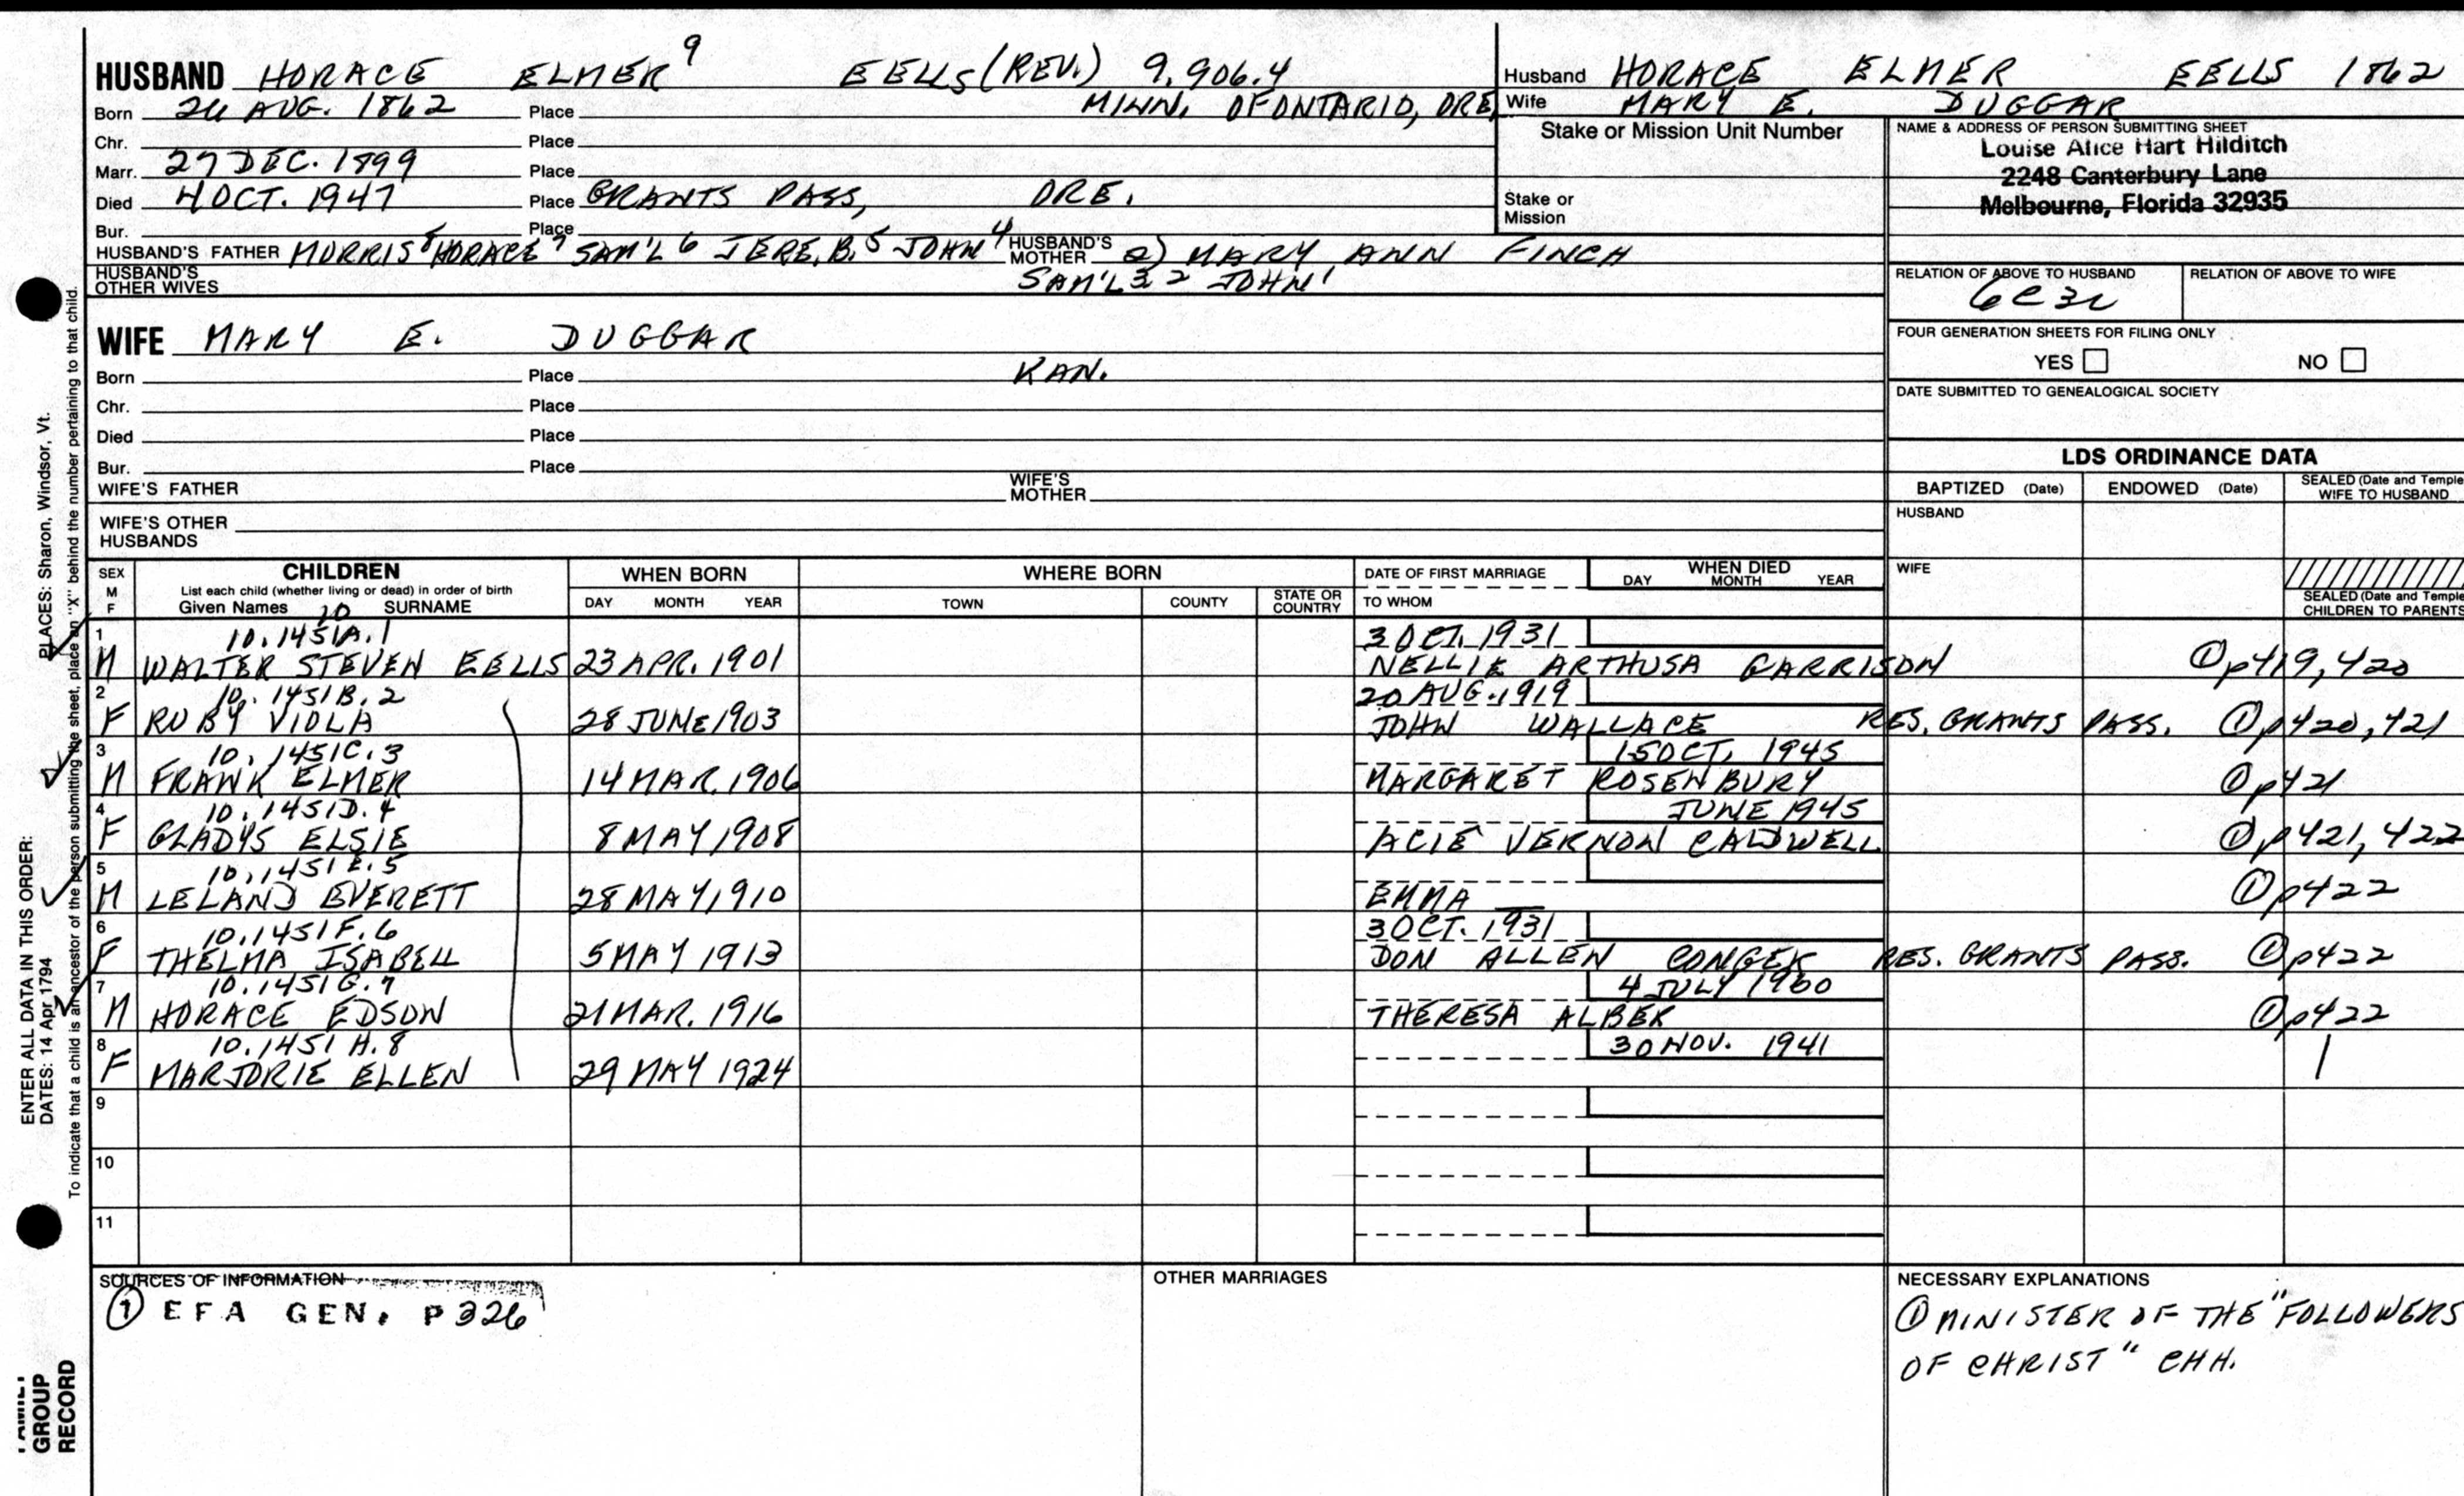 HUSBAND HORACE ELMER 9 EELLS (REV.) 9.906.4
Born 26 AUG. 1862 Place MINN. OF ONTARIO, ORE.
Chr. Place
Marr. 27 DEC. 1899 Place
Died 4 OCT. 1947 Place GRANTS PASS, ORE.
Bur. Place
HUSBAND'S FATHER MORRIS 8 HORACE 7 SAM'L 6 JERE. B. 5 JOHN 4 HUSBAND'S MOTHER 2) MARY ANN FINCH
HUSBAND'S OTHER WIVES SAM'L 3 2 JOHN 1
Husband HORACE ELMER EELLS 1862
Wife MARY E. DUGGAR
Stake or Mission Unit Number
Stake or Mission
NAME & ADDRESS OF PERSON SUBMITTING SHEET
Louise Alice Hart Hilditch
2248 Canterbury Lane
Melbourne, Florida 32935
RELATION OF ABOVE TO HUSBAND RELATION OF ABOVE TO WIFE
6C3R
FOUR GENERATION SHEETS FOR FILING ONLY
YES NO
DATE SUBMITTED TO GENEALOGICAL SOCIETY
WIFE MARY E. DUGGAR
Born Place KAN.
Chr. Place
Died Place
Bur. Place
WIFE'S FATHER WIFE'S MOTHER
WIFE'S OTHER HUSBANDS
LDS ORDINANCE DATA
BAPTIZED (Date) ENDOWED (Date) SEALED (Date and Temple) WIFE TO HUSBAND
HUSBAND
WIFE
SEALED (Date and Temple) CHILDREN TO PARENTS
SEX M F
CHILDREN
List each child (whether living or dead) in order of birth
Given Names 10 SURNAME
WHEN BORN
DAY MONTH YEAR
WHERE BORN
TOWN COUNTY STATE OR COUNTRY
DATE OF FIRST MARRIAGE
TO WHOM
WHEN DIED
DAY MONTH YEAR
1 10.1451A.1 3 OCT. 1931
M WALTER STEVEN EELLS 23 APR. 1901 NELLIE ARTHUSA GARRISON ① p419, 420
2 10.1451B.2 20 AUG. 1919
F RUBY VIOLA 28 JUNE 1903 JOHN WALLACE RES. GRANTS PASS. ① p420, 421
3 10.1451C.3 15 OCT. 1945
M FRANK ELMER 14 MAR. 1906 MARGARET ROSENBURY ① p421
4 10.1451D.4 JUNE 1945
F GLADYS ELSIE 8 MAY 1908 ACIE VERNON CALDWELL ① p421, 422
5 10.1451E.5
M LELAND EVERETT 28 MAY 1910 EMMA __ ① p422
6 10.1451F.6 3 OCT. 1931
F THELMA ISABELL 5 MAY 1913 DON ALLEN CONGER RES. GRANTS PASS. ① p422
7 10.1451G.7 4 JULY 1960
M HORACE EDSON 21 MAR. 1916 THERESA ALBEK ① p422
8 10.1451H.8 30 NOV. 1941
F MARJORIE ELLEN 29 MAY 1924
9
10
11
SOURCES OF INFORMATION
① EFA GEN. P326
OTHER MARRIAGES
NECESSARY EXPLANATIONS
① MINISTER OF THE "FOLLOWERS
OF CHRIST" CHH.
ENTER ALL DATA IN THIS ORDER:
DATES: 14 Apr 1794 PLACES: Sharon, Windsor, Vt.
To indicate that a child is an ancestor of the person submitting the sheet, place an "X" behind the number pertaining to that child.
FAMILY
GROUP
RECORD